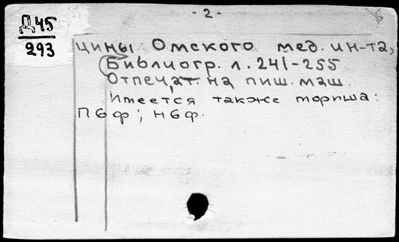 - 2 -
Д45
293
цины Омского мед. ин-та,
Библиогр. л. 241-255
Отпечат. на пиш. маш.
Имеется также
П6ф; Н6ф.